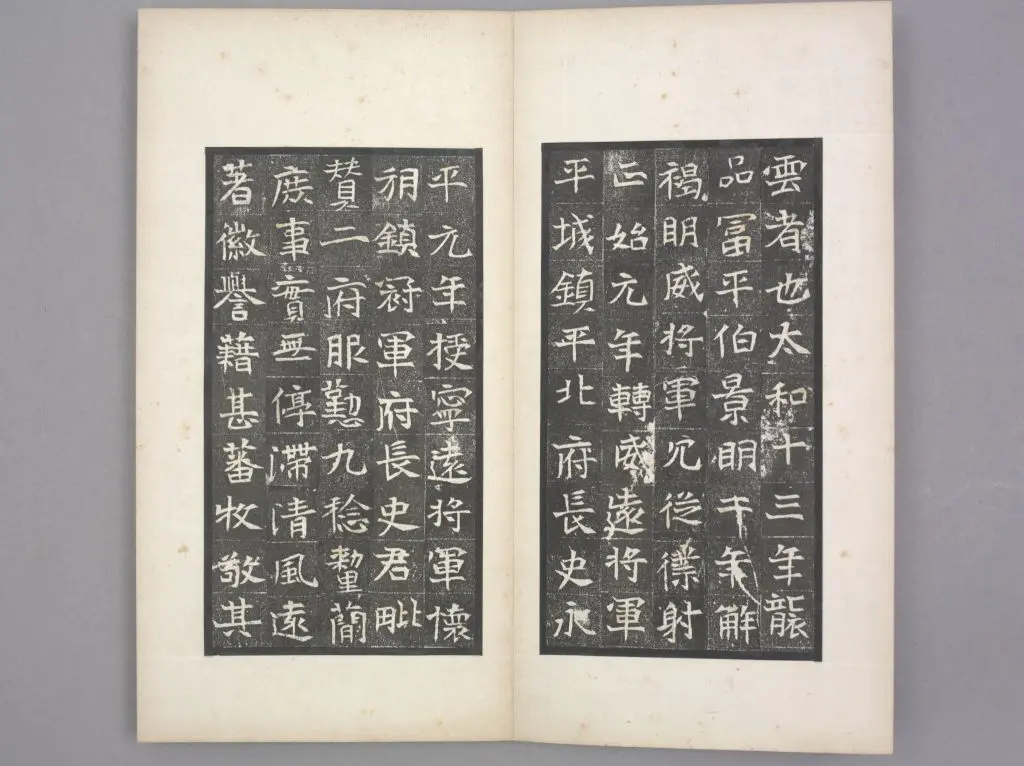 雲者也太和十三年襲
品冨平伯景明干年解
褐明威将軍冗從僕射
正始元年轉威遠将軍
平城鎮平北府長史永
平元年授寧遠将軍懷
朔鎮冠軍府長史君毗
贊二府服懃九稔釐蕳
庶事實無停滯清風遠
著徽譽藉甚蕃牧敬其